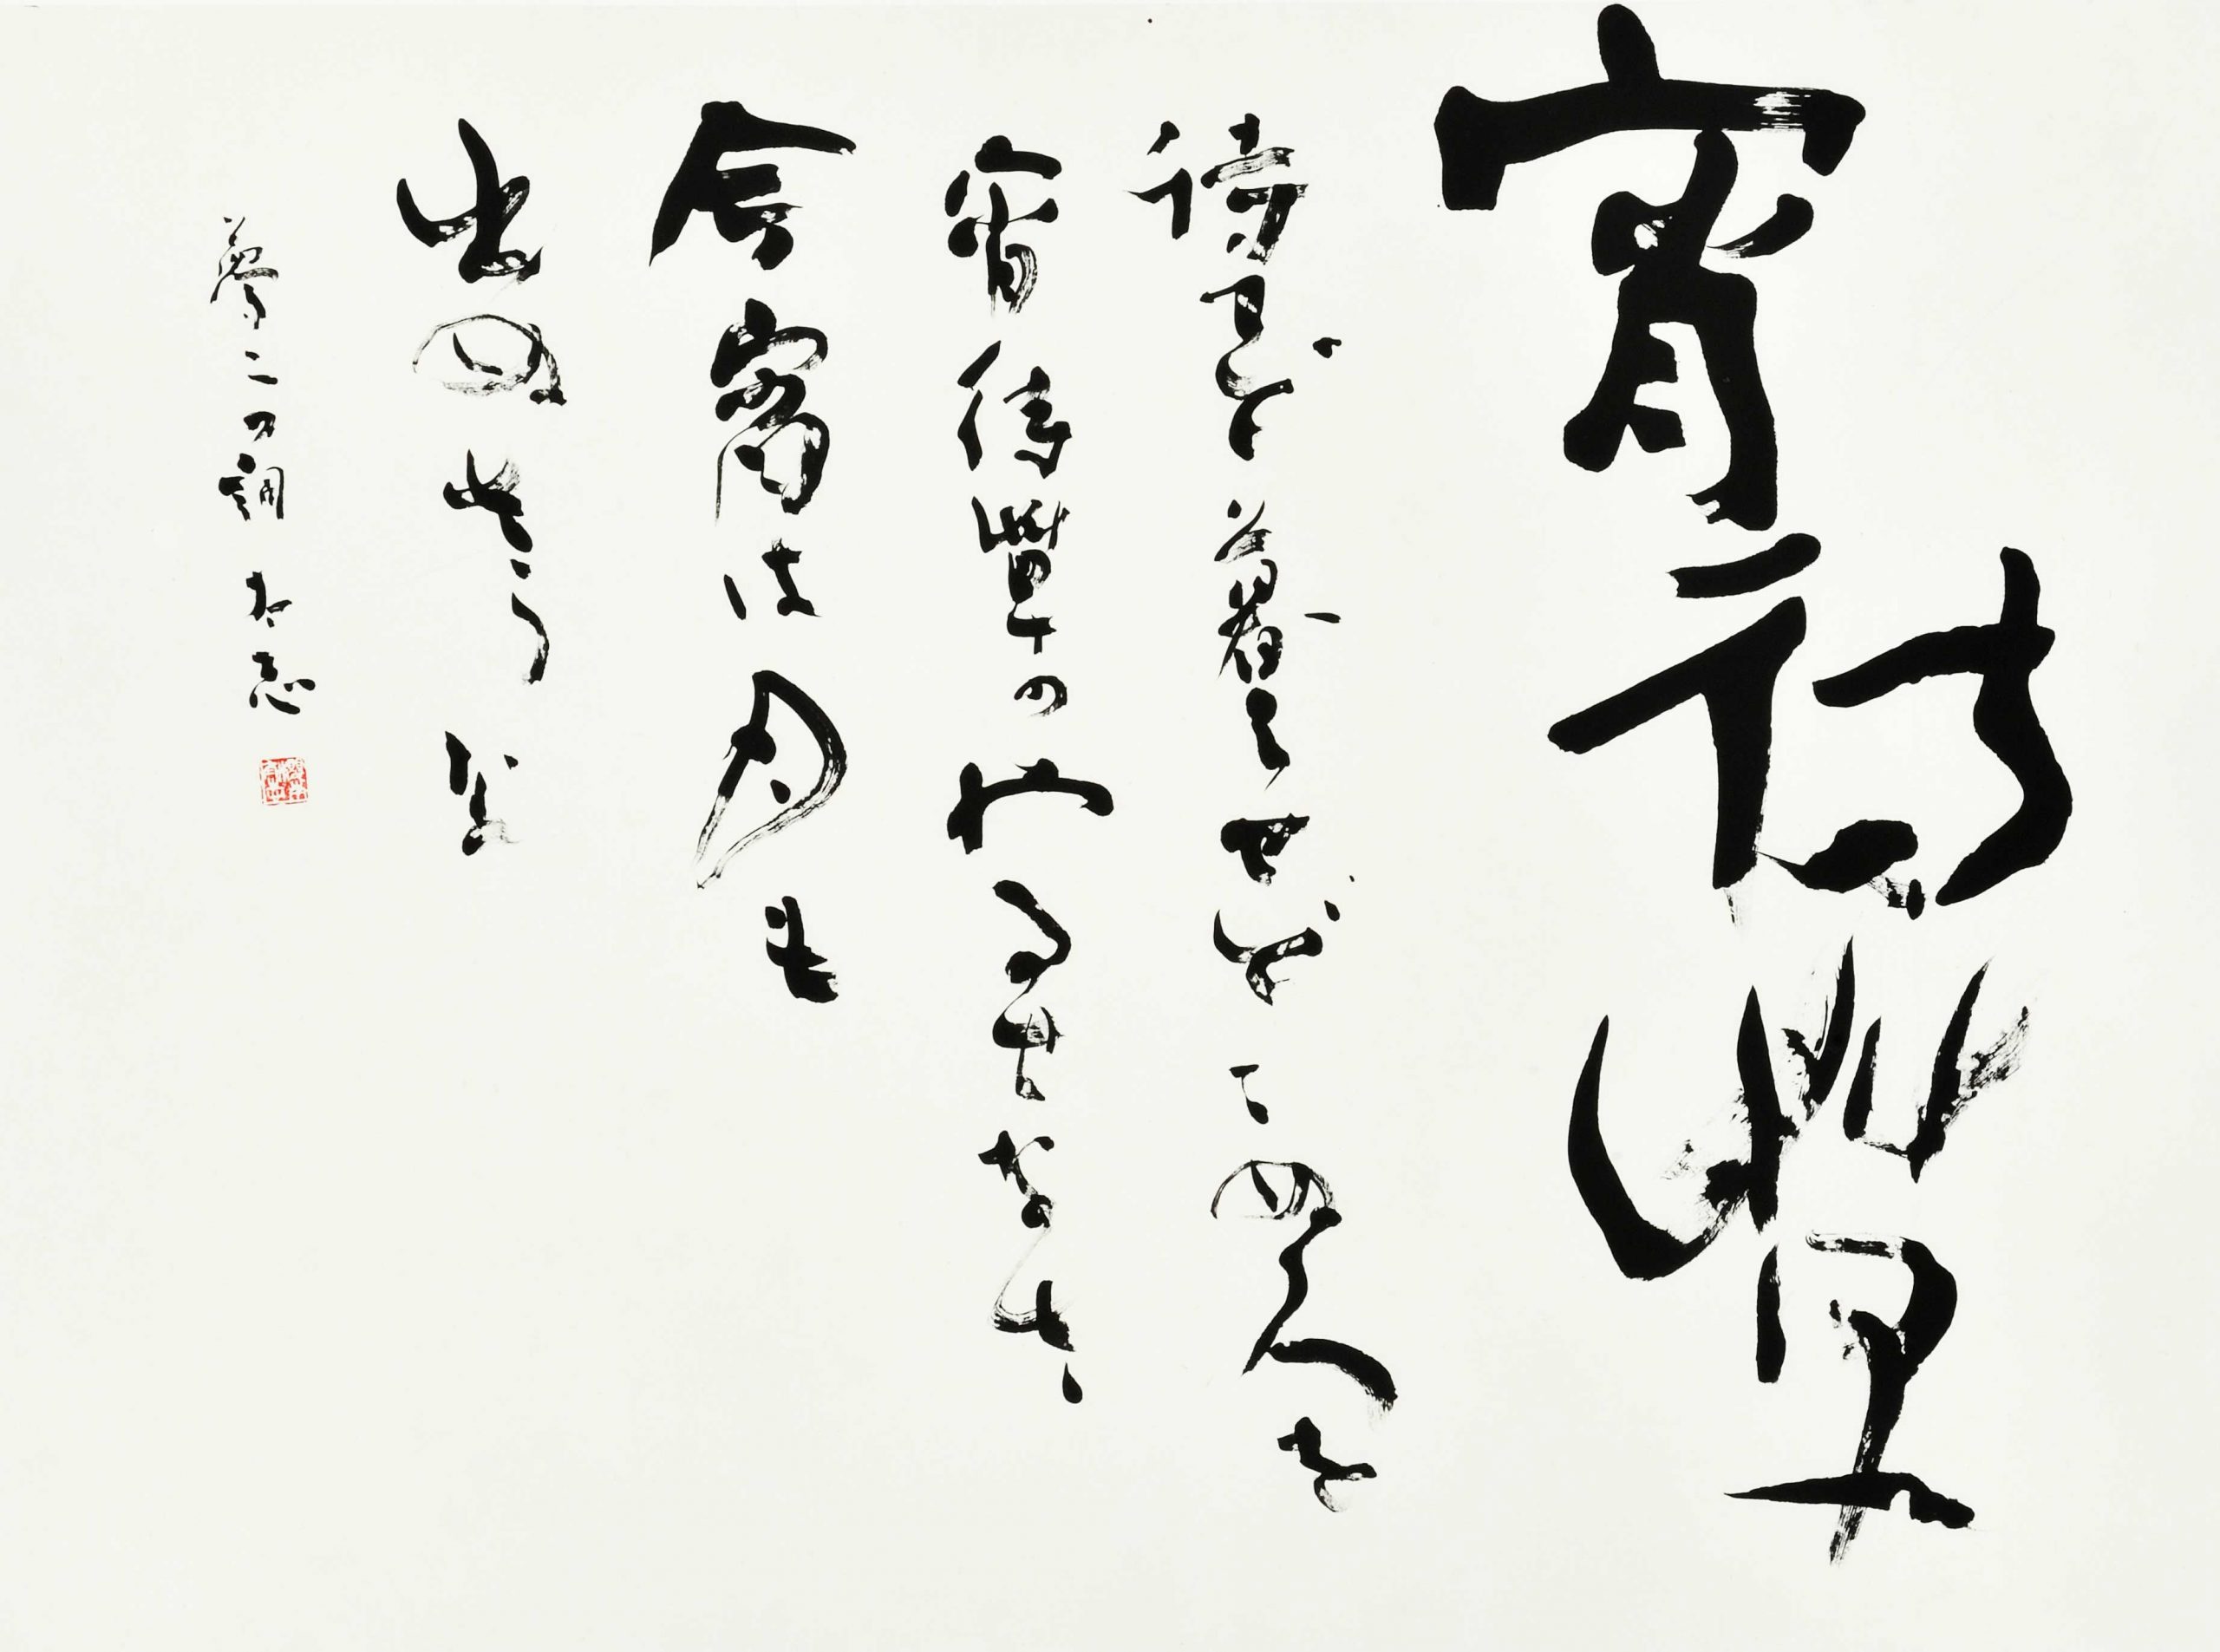 宵待草
待てど暮らせどこぬ人を
宵待草のやるせなさ
今宵は月も
出ぬさうな
夢二の詞